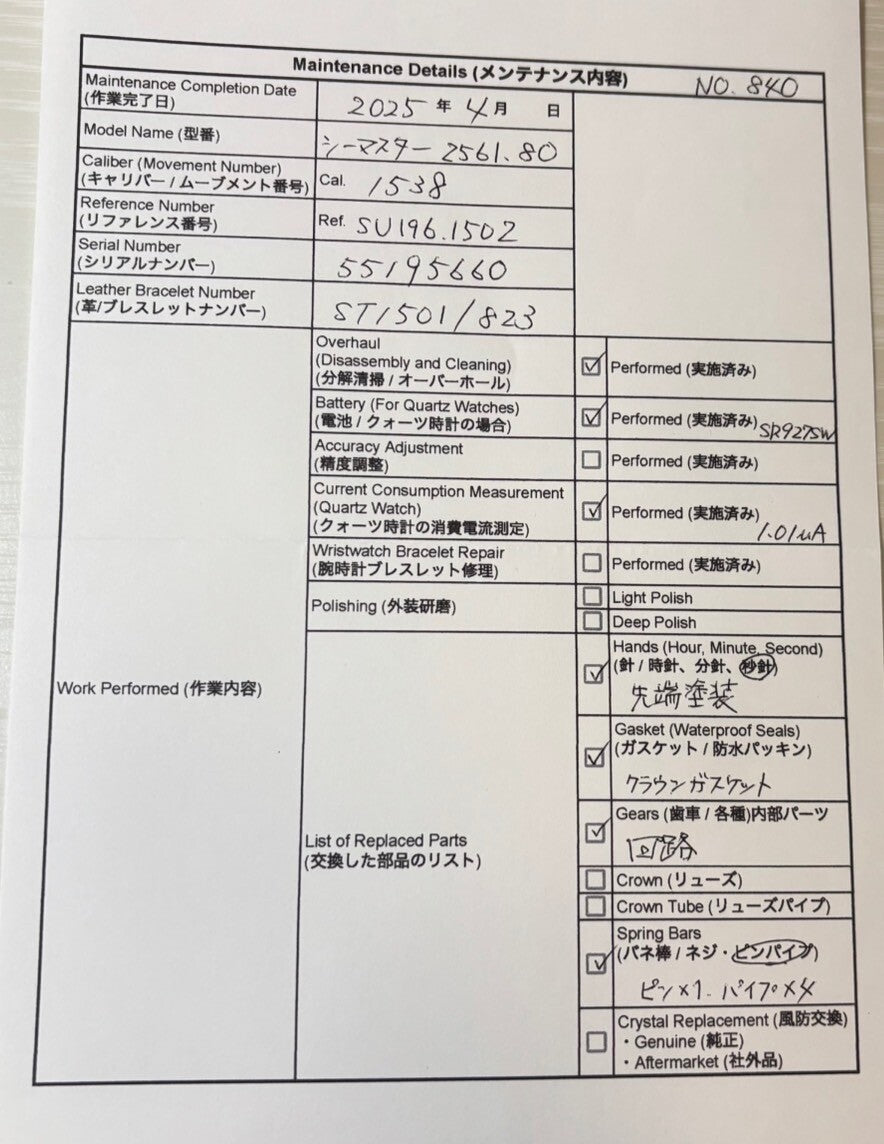 Maintenance Details (メンテナンス内容)
NO. 840
Maintenance Completion Date
(作業完了日)
2025 年 4月 日
Model Name (型番)
シーマスター 2561.80
Caliber (Movement Number)
(キャリバー / ムーブメント番号)
Cal. 1538
Reference Number
(リファレンス番号)
Ref. SU196.1502
Serial Number
(シリアルナンバー)
55195660
Leather Bracelet Number
(革/ブレスレットナンバー)
ST1501/823
Work Performed (作業内容)
Overhaul
(Disassembly and Cleaning)
(分解清掃 / オーバーホール)
☑ Performed (実施済み)
Battery (For Quartz Watches)
(電池 / クォーツ時計の場合)
☑ Performed (実施済み) SR927SW
Accuracy Adjustment
(精度調整)
☐ Performed (実施済み)
Current Consumption Measurement
(Quartz Watch)
(クォーツ時計の消費電流測定)
☑ Performed (実施済み)
1.01μA
Wristwatch Bracelet Repair
(腕時計ブレスレット修理)
☐ Performed (実施済み)
Polishing (外装研磨)
☐ Light Polish
☐ Deep Polish
List of Replaced Parts
(交換した部品のリスト)
☑ Hands (Hour, Minute, Second)
(針 / 時針、分針、秒針)
先端塗装
☑ Gasket (Waterproof Seals)
(ガスケット / 防水パッキン)
クラウンガスケット
☑ Gears (歯車 / 各種)内部パーツ
回路
☐ Crown (リューズ)
☐ Crown Tube (リューズパイプ)
☑ Spring Bars
(バネ棒 / ネジ・ピンパイプ)
ピン×1. パイプ×4
☐ Crystal Replacement (風防交換)
・Genuine (純正)
・Aftermarket (社外品)